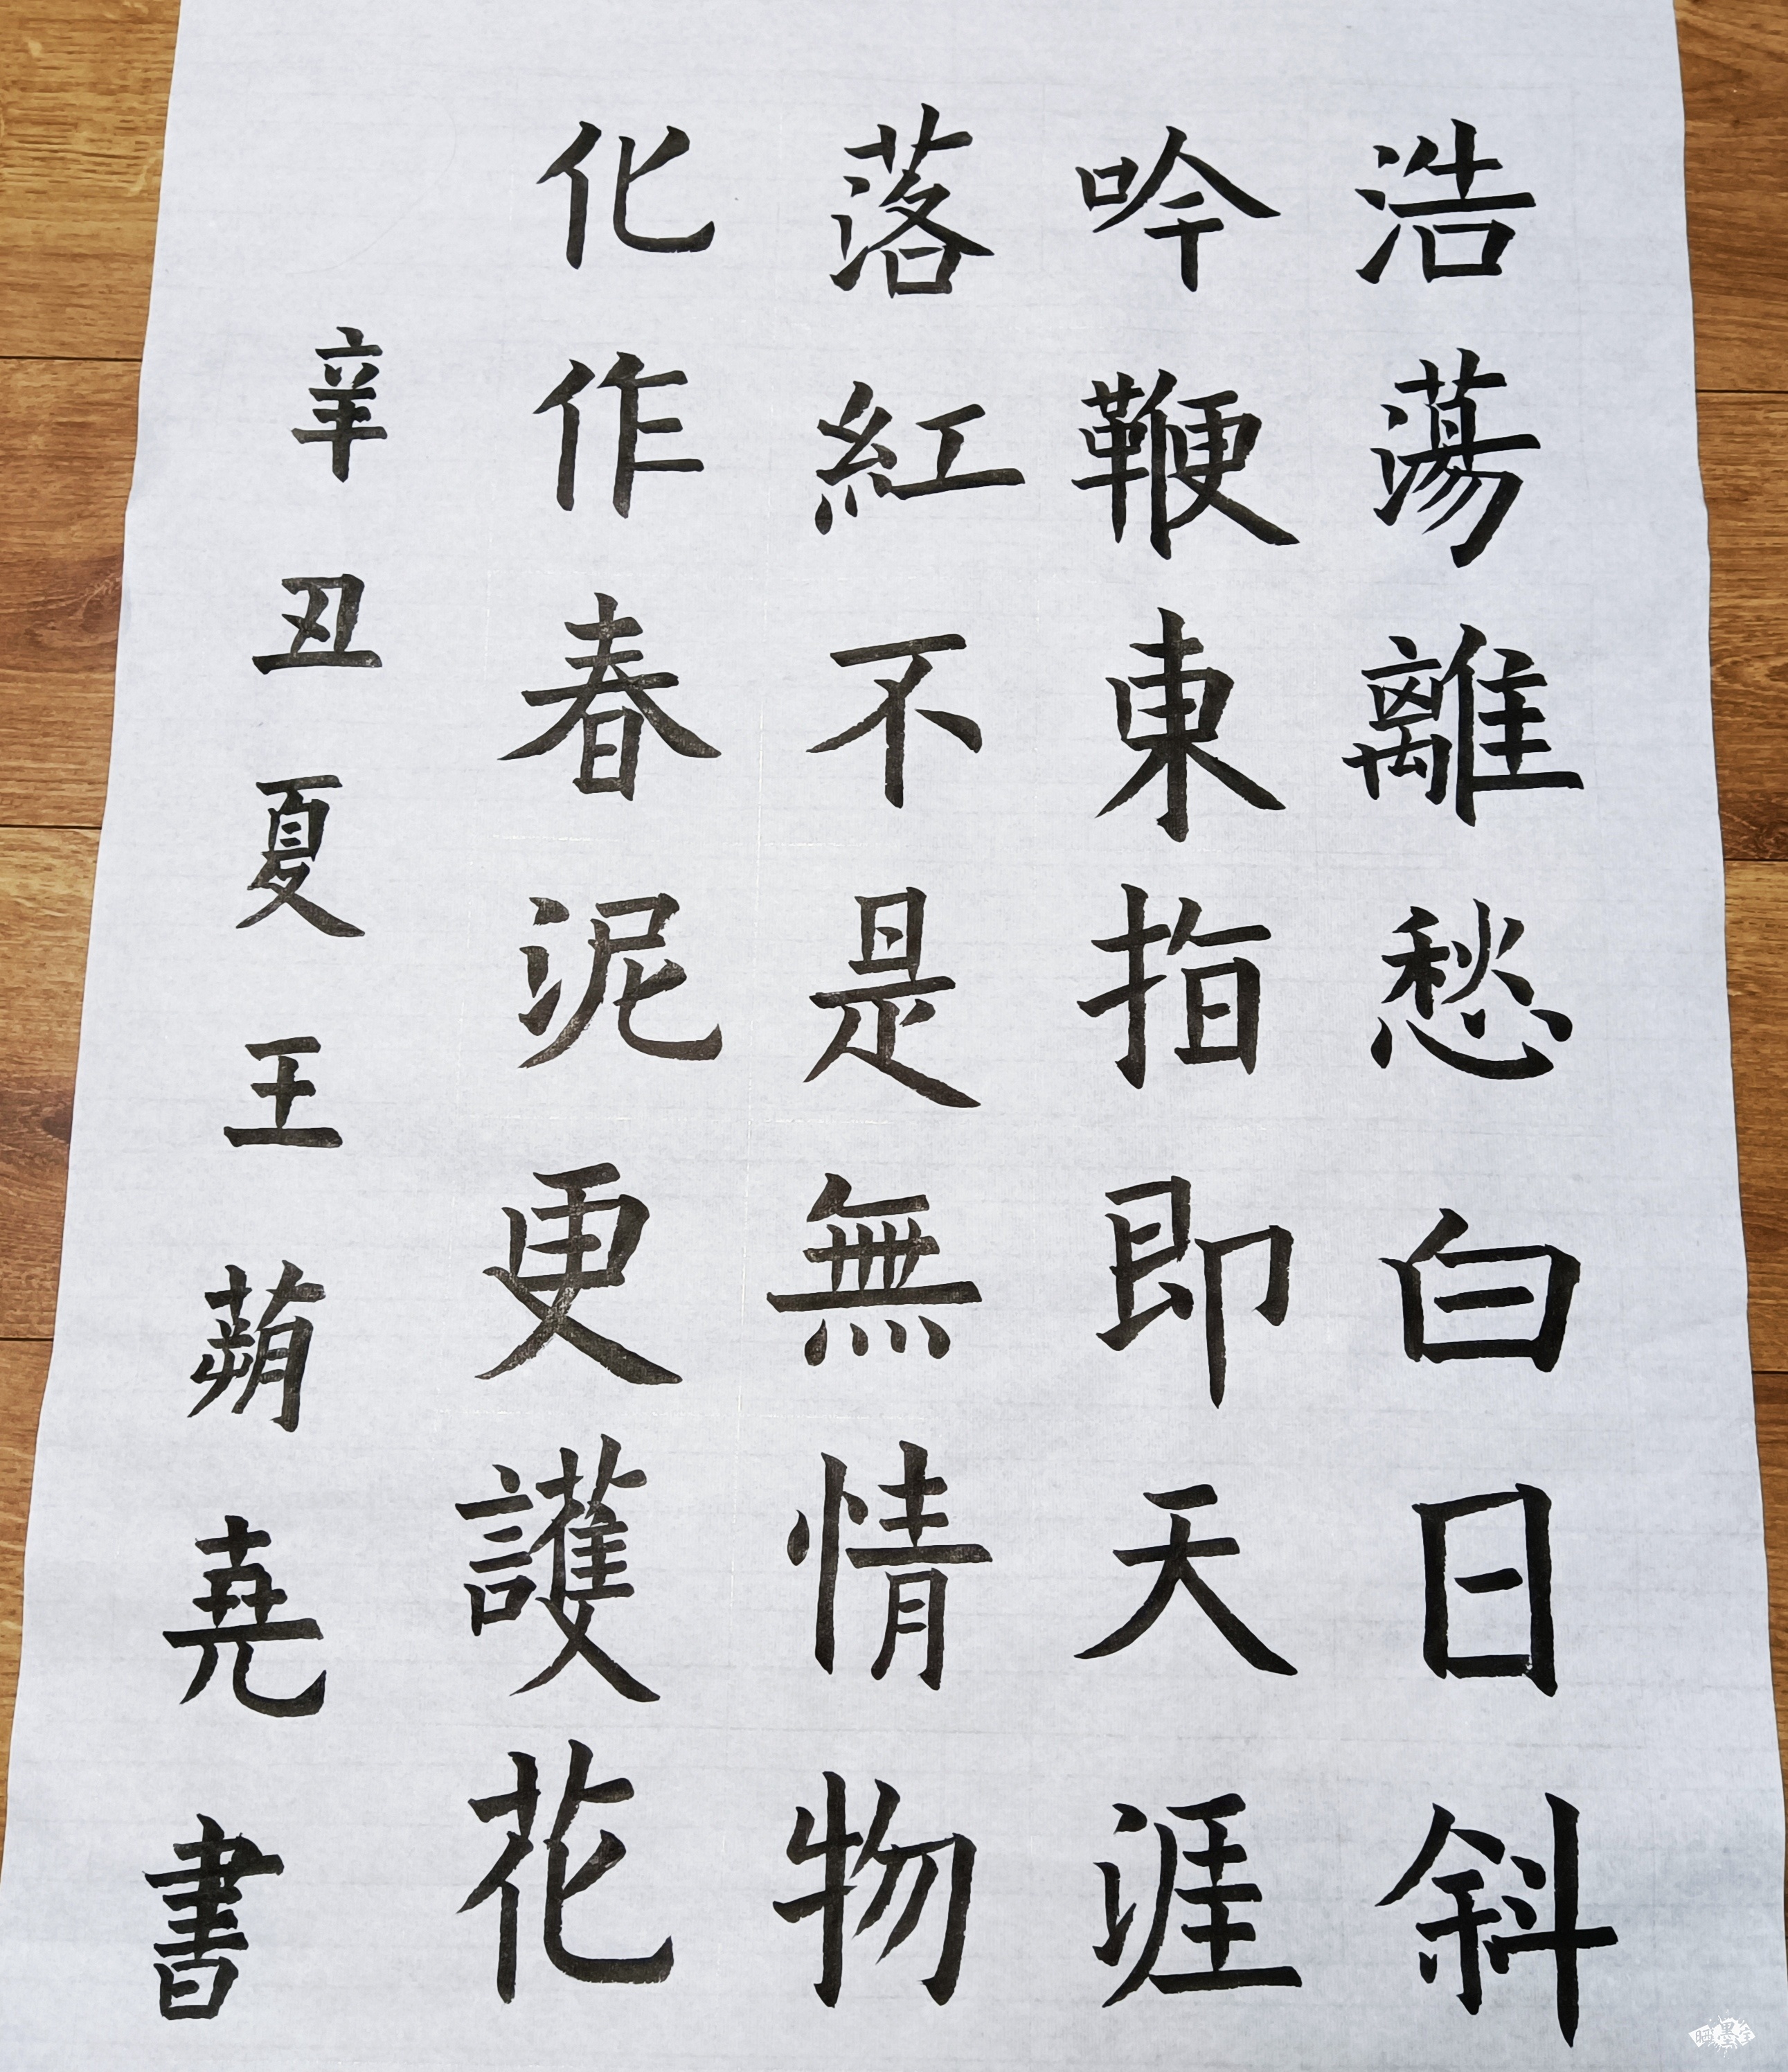 浩蕩離愁白日斜
吟鞭東指即天涯
落紅不是無情物
化作春泥更護花
辛丑夏王蒴堯書